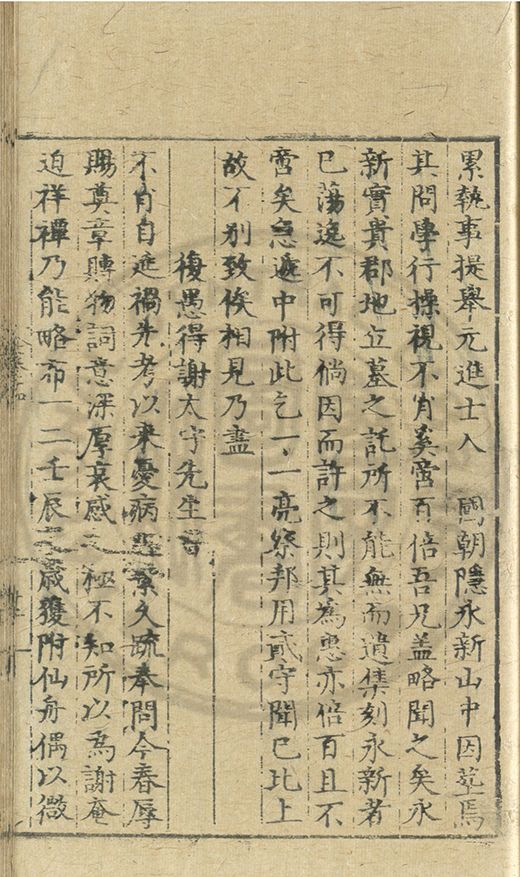 累執事提舉元進士入 國朝隱永新山中因葬焉
其問學行操視不肖奚啻百倍吾兄盖略聞之矣永
新實貴郡地立墓之託所不能無而遺集刻永新者
已蕩逸不可得倘因而許之則其為惠亦倍百且不
啻矣急遽中附此乞一一亮察邦用貳守聞已比上
故不別致俟相見乃盡
復愚得謝太守先生書
不肖自進禍先考以来憂病纒縈久疏奉問今春辱
賜奠章賻物詞意深厚哀感之極不知所以為謝奄
迫祥禫乃能略布一二壬辰之歲獲附仙舟偶以微